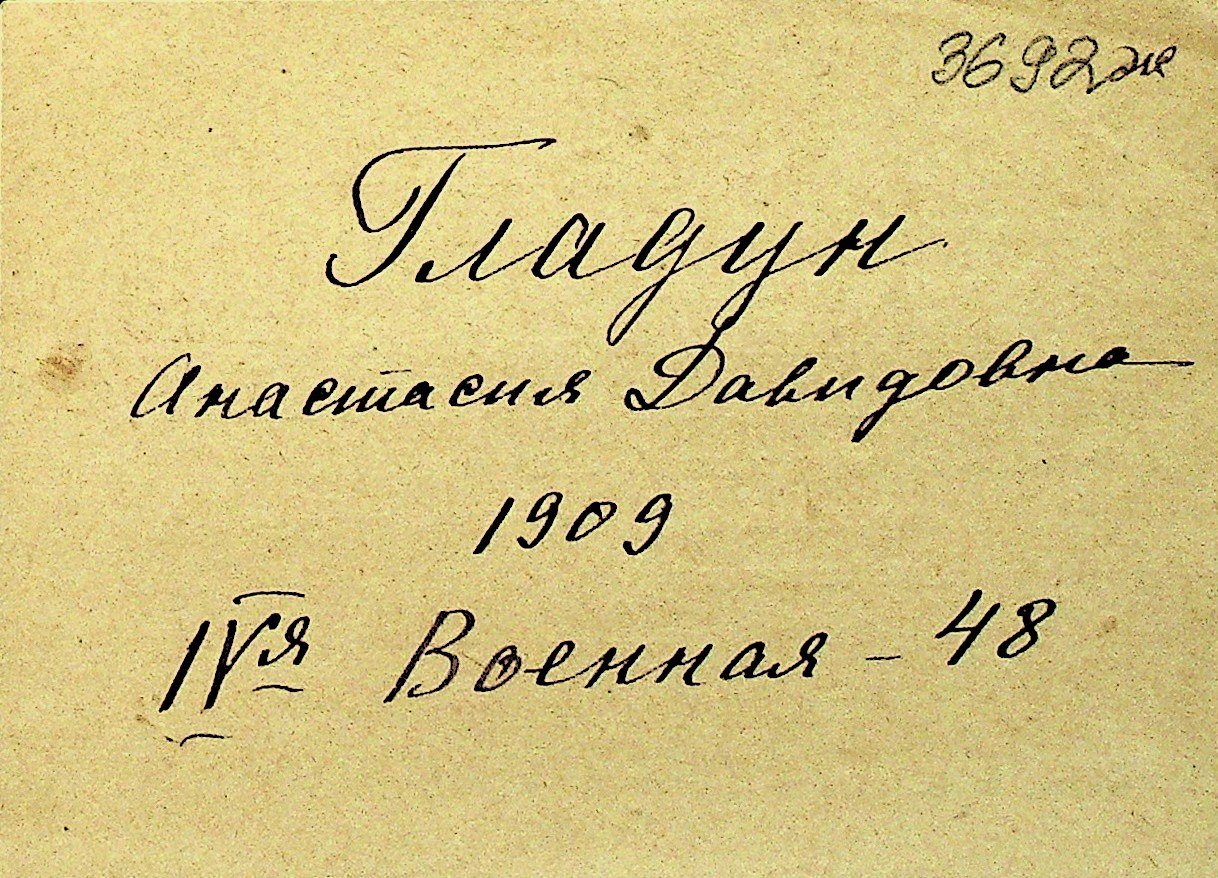 3692же
Гладун
Анастасия Давидовна
1909
IVя Военная - 48